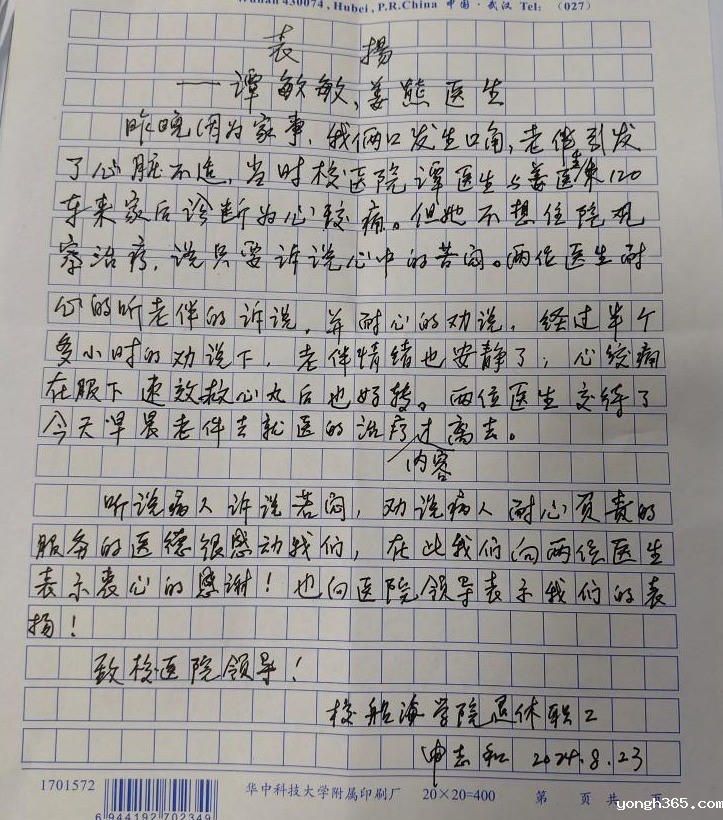 Wuhan 430074, Hubei, P.R.China 中国·武汉 Tel: (027)
表 揚
——谭敏敏、姜熊医生
昨晚因为家事，我俩口发生口角，老伴引发
了心脏不适，当时校医院谭医生与姜医生来120
车来家后诊断为心绞痛。但她不想住院观
察治疗，说只要诉说心中的苦闷。两位医生耐
心的听老伴的诉说，并耐心的劝说，经过半个
多小时的劝说下，老伴情绪也安静了，心绞痛
在服下速效救心丸后也好转。两位医生交待了
今天早晨老伴去就医的治疗内容过离去。
听说病人诉说苦闷，劝说病人耐心负责的
服务的医德很感动我们，在此我们向两位医生
表示衷心的感谢！也向医院领导表示我们的表
扬！
致校医院领导！
校船海学院退休职工
申志和 2024.8.23
1701572
华中科技大学附属印刷厂 20×20=400 第 页 共 页
6 944192 702349
yongh365.com